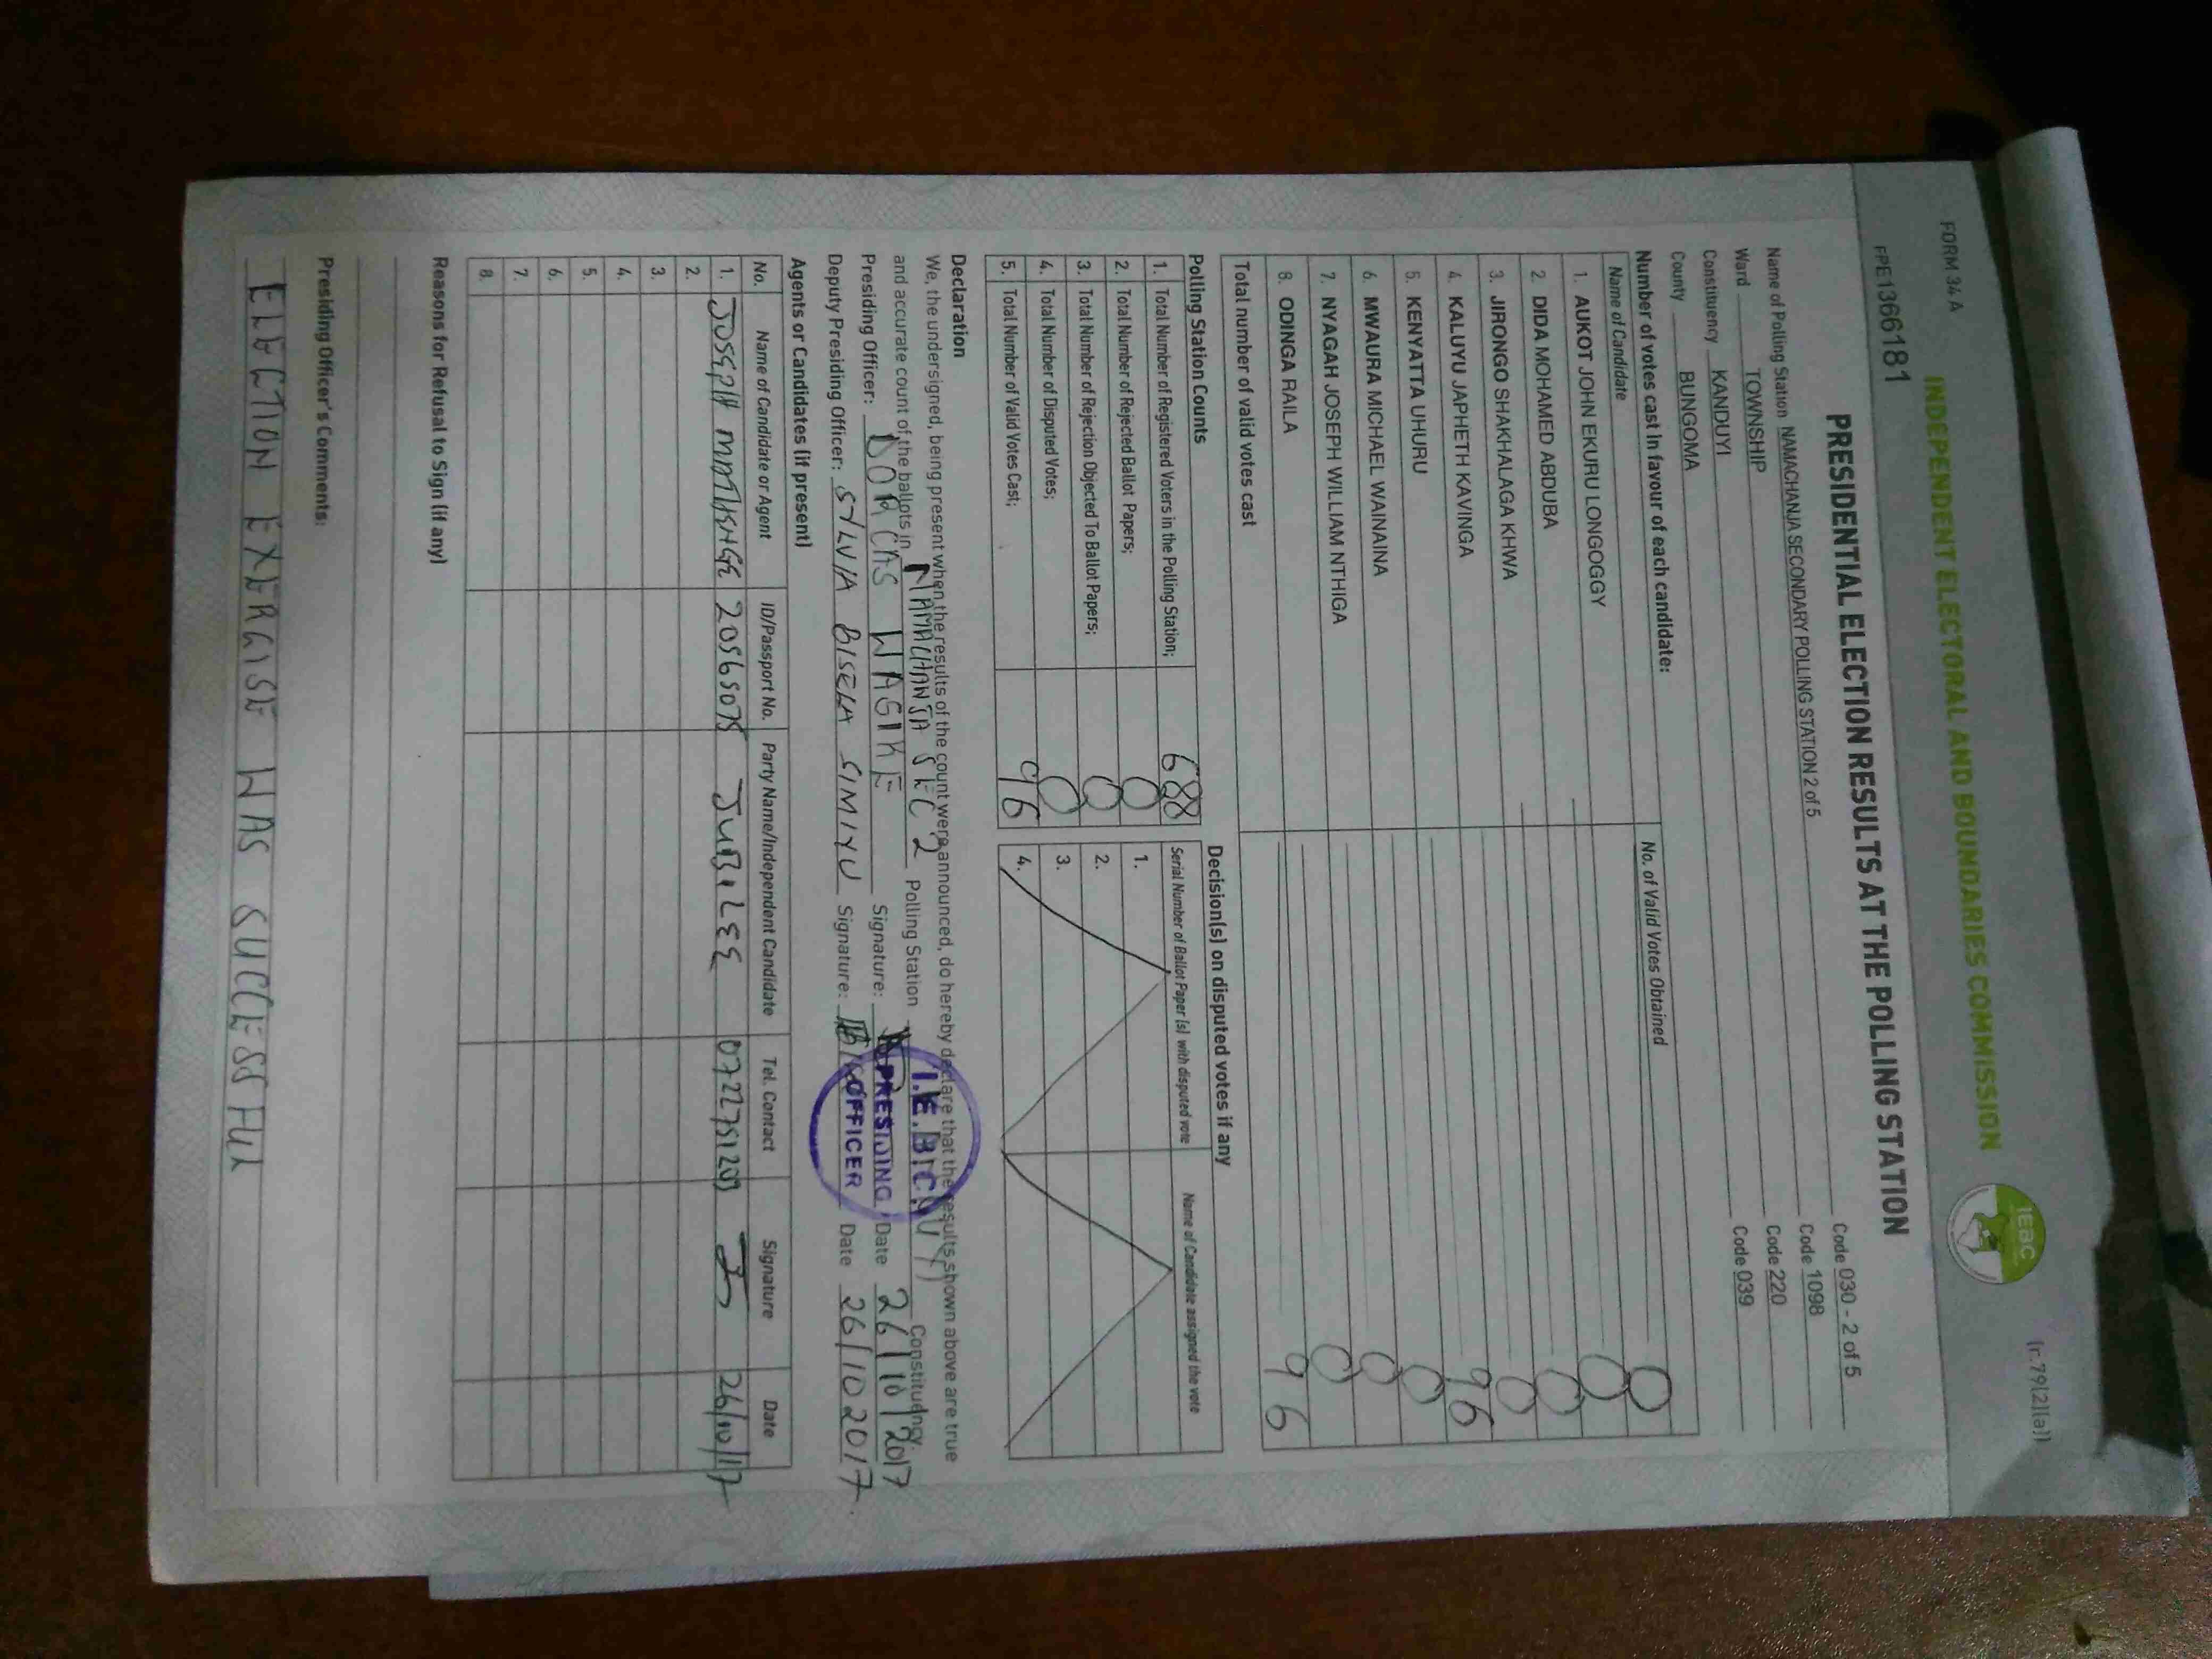 FORM 34 A
(r.79(2)(a))
INDEPENDENT ELECTORAL AND BOUNDARIES COMMISSION
IEBC
FPE1366181
PRESIDENTIAL ELECTION RESULTS AT THE POLLING STATION
Name of Polling Station NAMACHANJA SECONDARY POLLING STATION 2 of 5 Code 030 - 2 of 5
Ward TOWNSHIP Code 1098
Constituency KANDUYI Code 220
County BUNGOMA Code 039
Number of votes cast in favour of each candidate:
Name of Candidate No. of Valid Votes Obtained
1. AUKOT JOHN EKURU LONGOGGY 0
2. DIDA MOHAMED ABDUBA 0
3. JIRONGO SHAKHALAGA KHWA 0
4. KALUYU JAPHETH KAVINGA 0
5. KENYATTA UHURU 96
6. MWAURA MICHAEL WAINAINA 0
7. NYAGAH JOSEPH WILLIAM NTHIGA 0
8. ODINGA RAILA 0
Total number of valid votes cast 96
Polling Station Counts
1. Total Number of Registered Voters in the Polling Station; 688
2. Total Number of Rejected Ballot Papers; 0
3. Total Number of Rejection Objected To Ballot Papers; 0
4. Total Number of Disputed Votes; 0
5. Total Number of Valid Votes Cast; 96
Decision(s) on disputed votes if any
Serial Number of Ballot Paper (s) with disputed vote Name of Candidate assigned the vote
1.
2.
3.
4.
Declaration
We, the undersigned, being present when the results of the count were announced, do hereby declare that the results shown above are true
and accurate count of the ballots in NAMACHANJA SEC 2 Polling Station Constituency.
Presiding Officer: DORCAS WASIKE Signature: Date 26/10/2017
Deputy Presiding Officer: SYLVIA BISELA SIMIYU Signature: Date 26/10 2017
I.E.B.C
PRESIDING
OFFICER
Agents or Candidates (if present)
No. Name of Candidate or Agent ID/Passport No. Party Name/Independent Candidate Tel. Contact Signature Date
1. JOSEPH 20565075 JUBILEE 0722751209 26/10/17
2.
3.
4.
5.
6.
7.
8.
Reasons for Refusal to Sign (if any)
Presiding Officer's Comments:
ELECTION EXERCISE WAS SUCCESSFUL